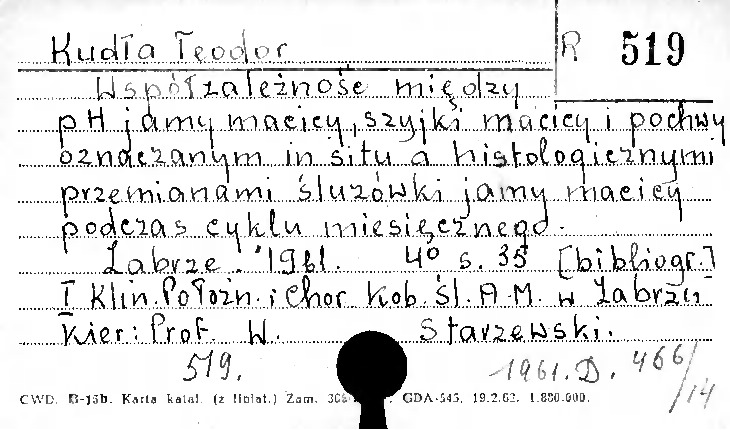 Kudła Teodor R 519
Współzależność między
pH jamy macicy, szyjki macicy i pochwy
oznaczanym in situ a histologicznymi
przemianami śluzówki jamy macicy
podczas cyklu miesięcznego.
Zabrze. 1961. 4° s. 35 [bibliogr.]
I Klin. Położn. i Chor. Kob. Śl. A.M. w Zabrzu
Kier: Prof. W. Starzewski.
519. 1961. D. 466/14
CWD. B-15b. Karta katal. (z liniat.) Zam. GDA-545. 19.2.62. 1.880.000.